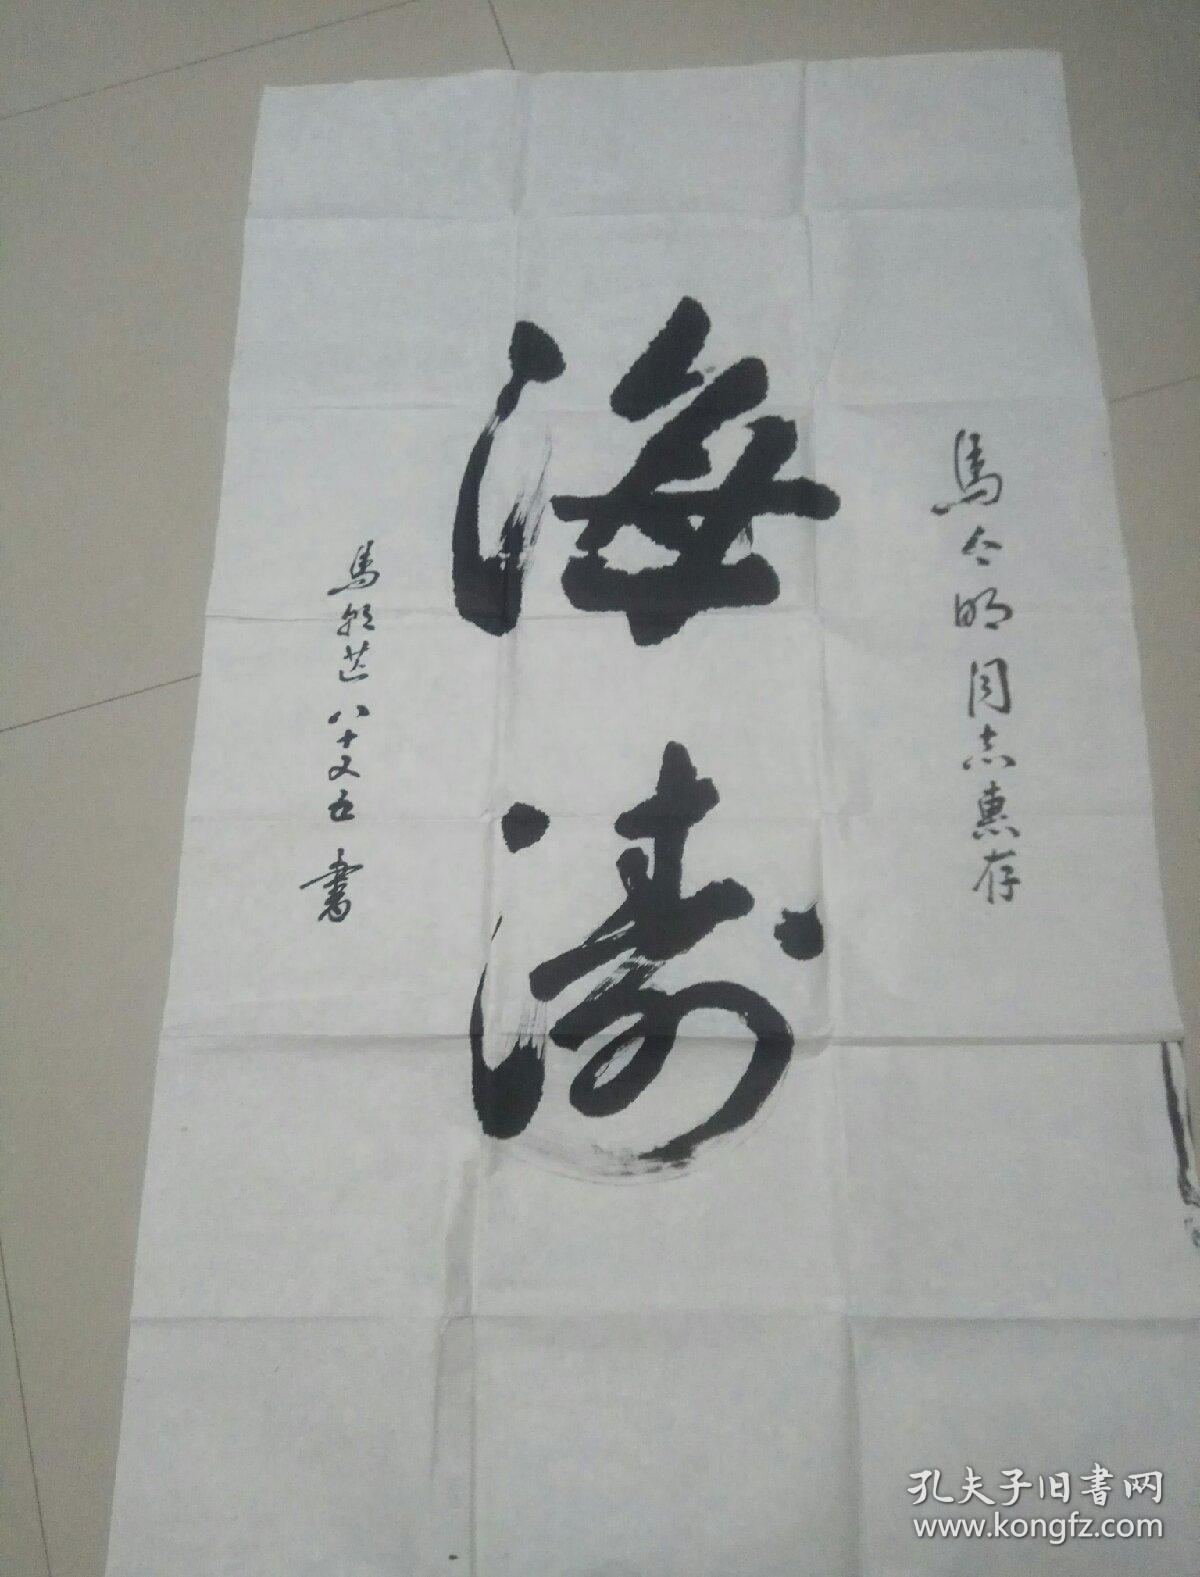 馬令明同志惠存
海濤
八十又五書
孔夫子旧書网
www.kongfz.com